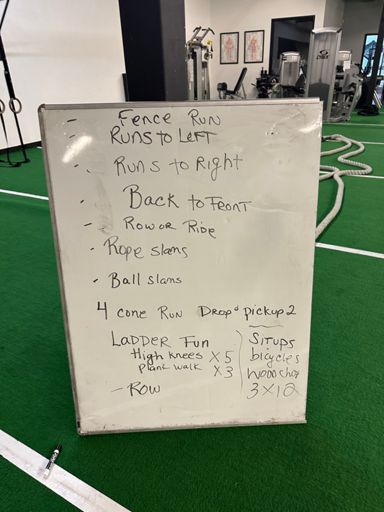 - Fence Run
- Runs to Left
- Runs to Right
- Back to Front
- Row or Ride
- Rope slams
- Ball slams
4 cone Run Drop & pickup 2
Ladder Fun
High knees x5
Plank walk x3
- Row
Situps
bicycles
woodchop
3x12